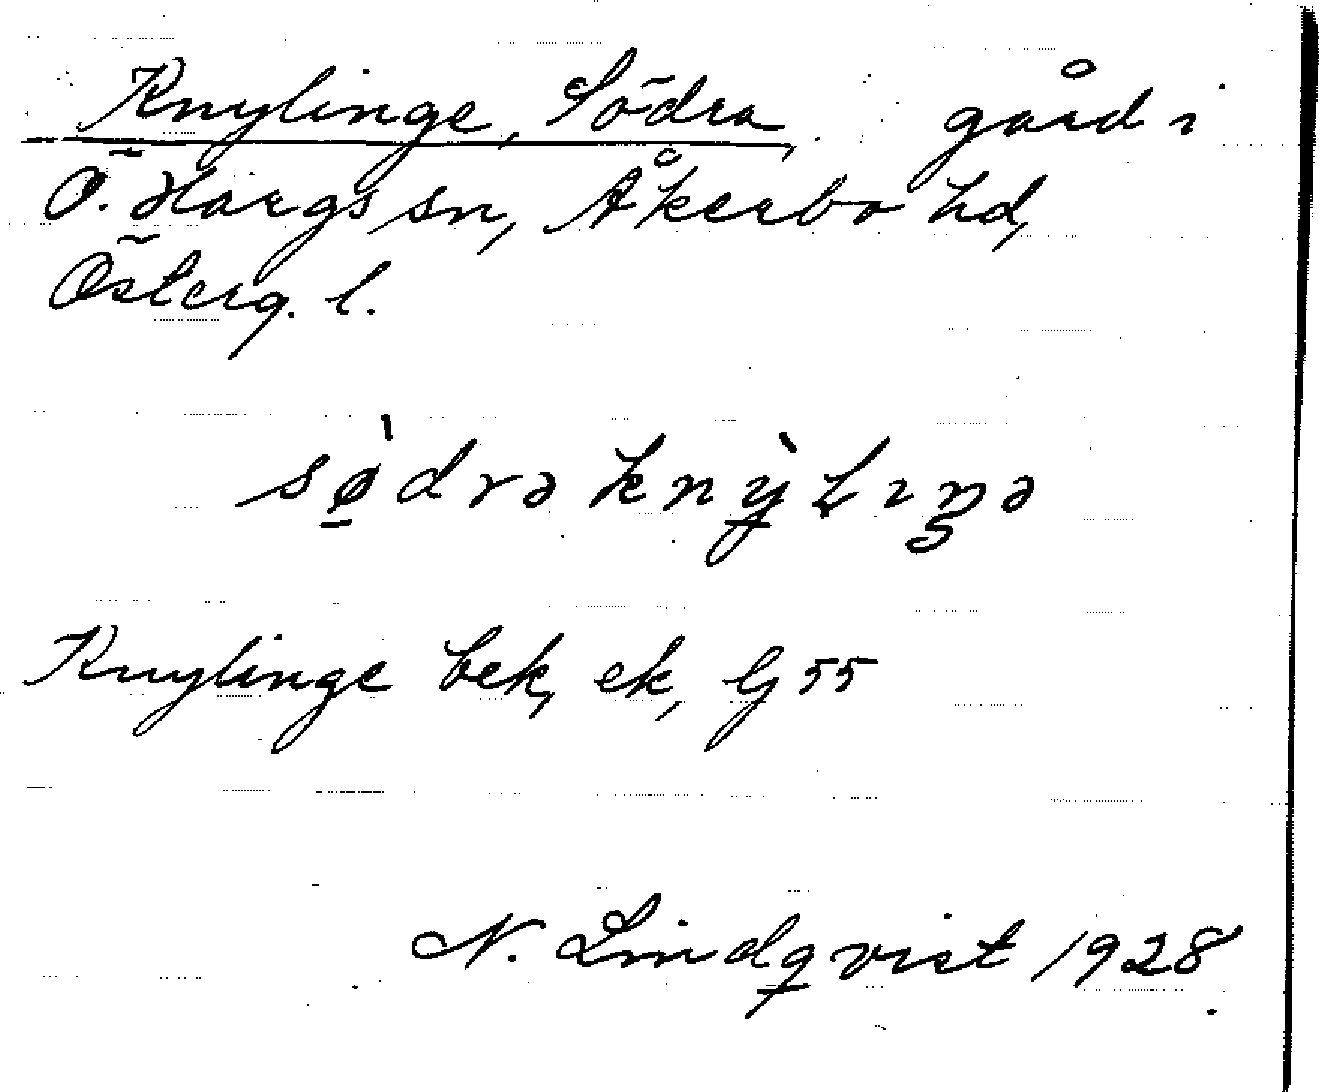 Knylinge, Södra, gård i
Ö. Hargs sn, Åkerbo hd,
Österg. l.
sø̠̀drə knỳ̠lɩŋə
Knylinge bek, ek, Gj 55
N. Lindqvist 1928.